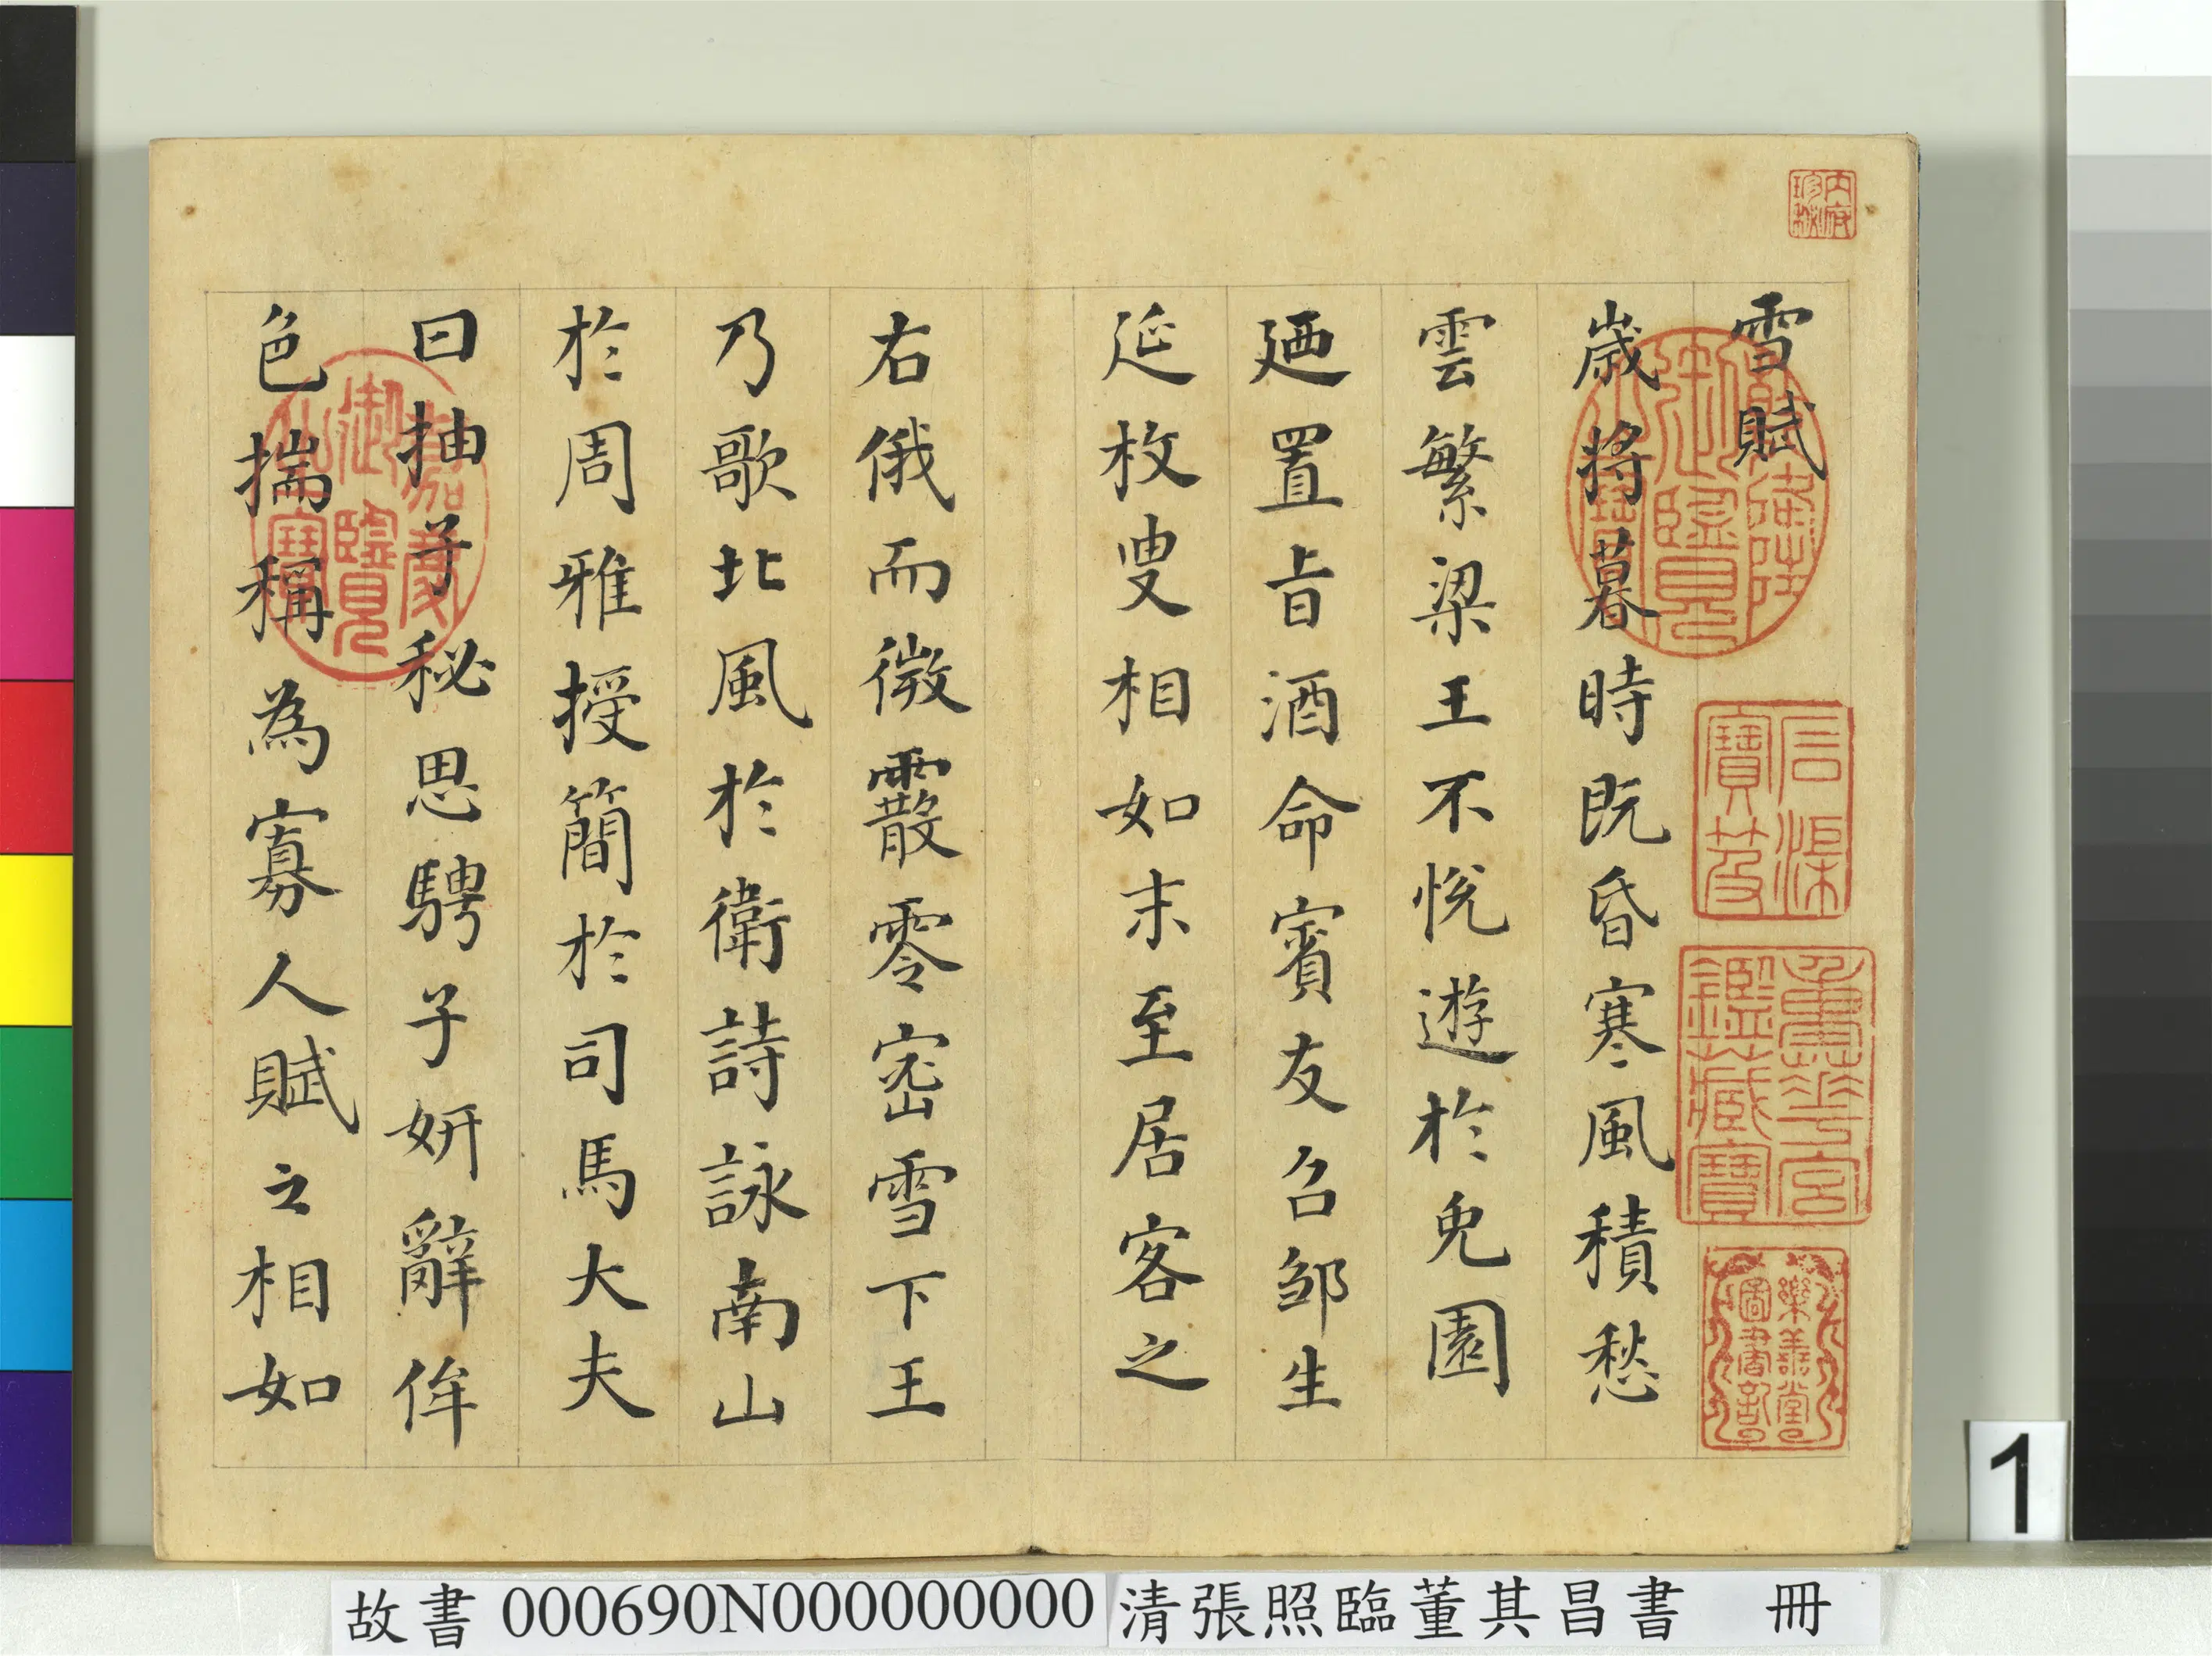 內府珍秘
雪賦
乾隆御覽之寶
石渠寶笈
重華宮鑑藏寶
樂善堂圖書記
歲將暮時既昏寒風積愁
雲繁梁王不悅遊於兔園
廼置旨酒命賓友召邹生
延枚叟相如末至居客之
右俄而微霰零密雪下王
乃歌北風於衛詩詠南山
於周雅授簡於司馬大夫
曰抽子秘思騁子妍辭侔
色揣稱為寡人賦之相如
嘉慶御覽之寶
1
故書 000690N000000000 清張照臨董其昌書 冊